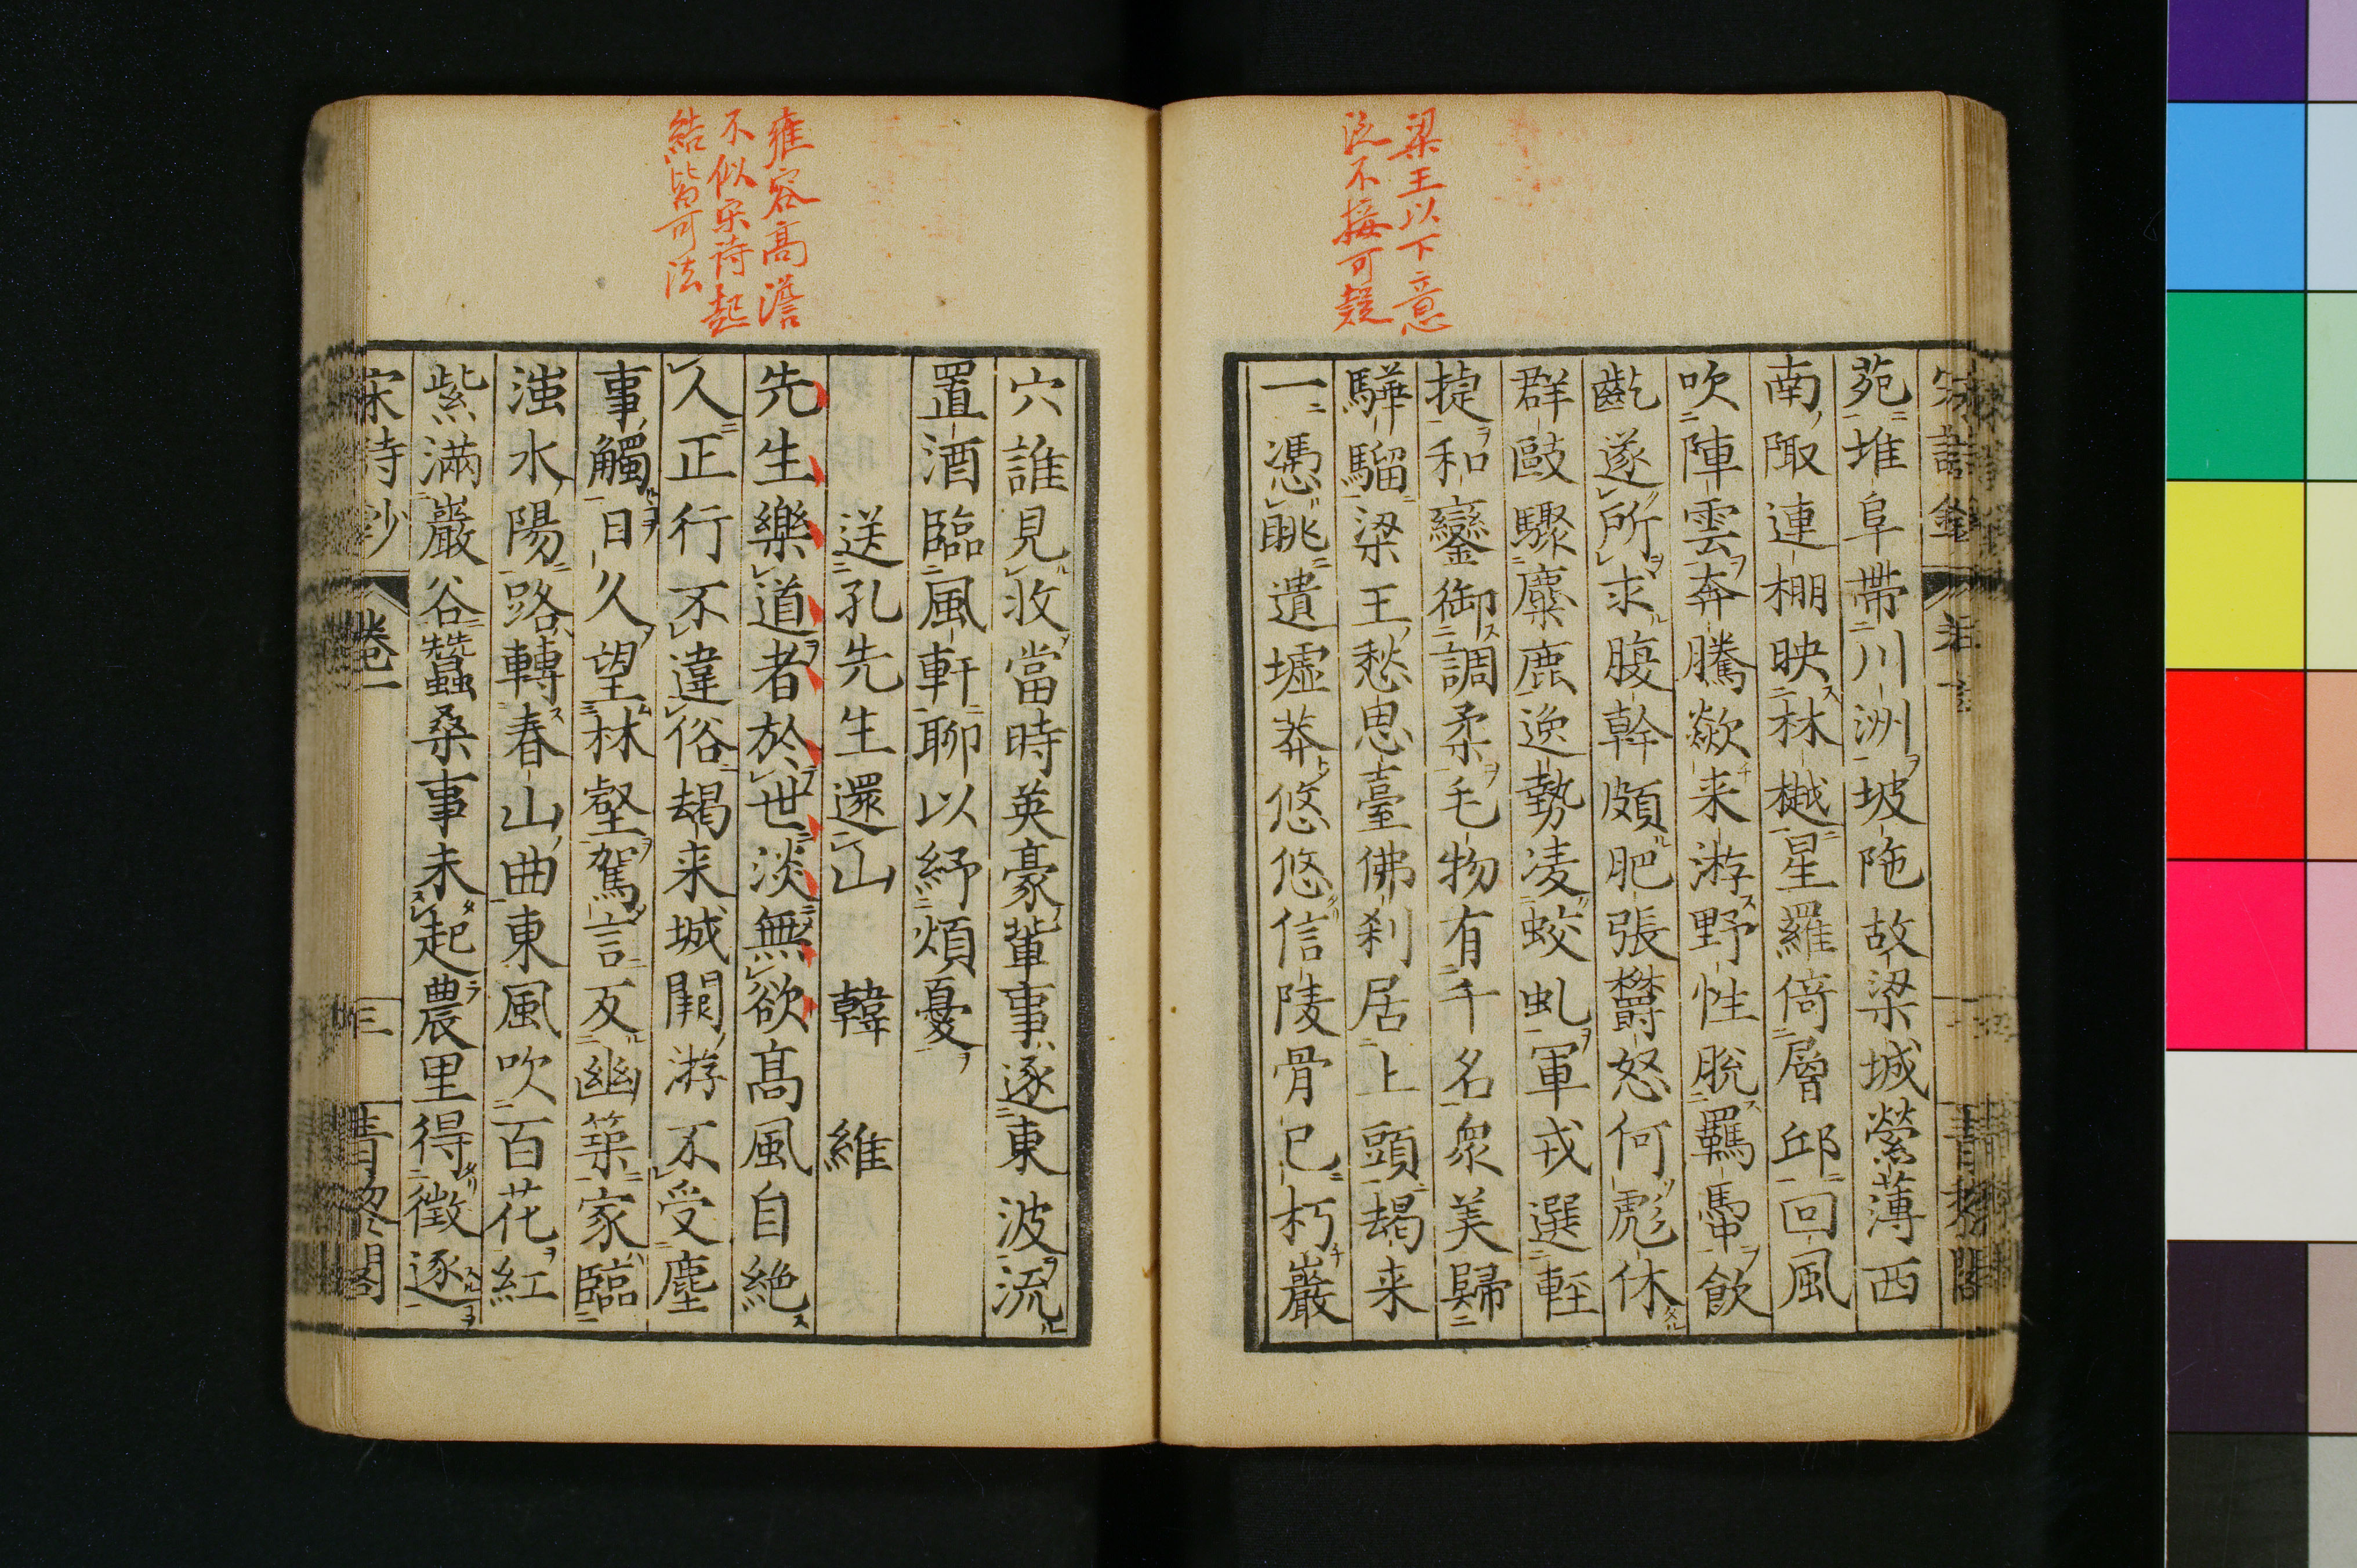 梁王以下意
泛不接可疑
苑堆阜帶川洲坡陁故梁城縈薄西
南陬連棚映林樾星羅倚層邱回風
吹陣雲奔騰欻来游野性脫羈馽飲
齕遂所求腹幹頗肥張欝怒何彪休
群敺驟麋鹿逸勢凌蛟虬軍戎選輕
捷和鑾御調柔毛物有千名衆美歸
驊騮梁王愁思臺佛刹居上頭朅来
一憑眺遺墟莽悠悠信陵骨已朽巖
雍容高澹
不似宋詩起
結皆可法
穴誰見收當時英豪輩事逐東波流
置酒臨風軒聊以紓煩憂
送孔先生還山　韓　維
先生樂道者於世淡無欲高風自絶
人正行不違俗朅来城闕游不受塵
事觸日久望林壑駕言反幽築家臨
滍水陽路轉春山曲東風吹百花紅
紫滿巖谷蠶桑事未起農里得徵逐
宋詩鈔　卷一　三　青黎閣